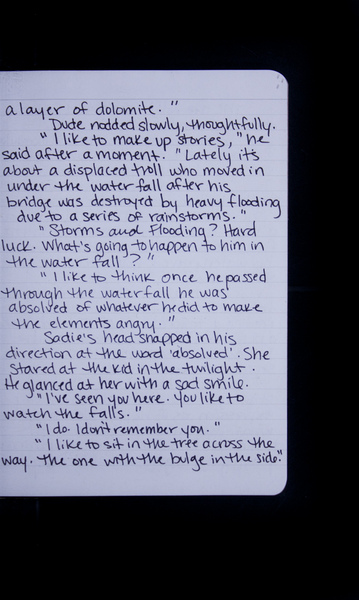 a layer of dolomite."
Dude nodded slowly, thoughtfully.
"I like to make up stories," he
said after a moment. "Lately it's
about a displaced troll who moved in
under the waterfall after his
bridge was destroyed by heavy flooding
due to a series of rainstorms."
"Storms and flooding? Hard
luck. What's going to happen to him in
the water fall?"
"I like to think once he passed
through the waterfall he was
absolved of whatever he did to make
the elements angry."
Sadie's head snapped in his
direction at the word 'absolved'. She
stared at the kid in the twilight.
He glanced at her with a sad smile.
"I've seen you here. You like to
watch the falls."
"I do. I don't remember you."
"I like to sit in the tree across the
way. The one with the bulge in the side."